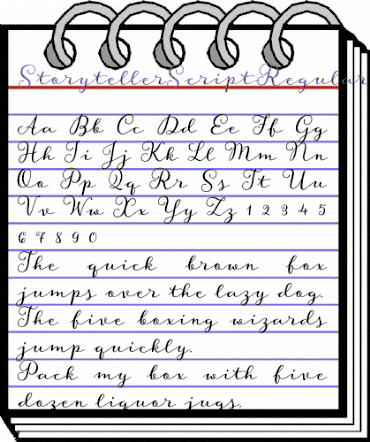 StorytellerScriptRegular
Aa Bb Cc Dd Ee Ff Gg
Hh Ii Jj Kk Ll Mm Nn
Oo Pp Qq Rr Ss Tt Uu
Vv Ww Xx Yy Zz 1 2 3 4 5
6 7 8 9 0
The quick brown fox
jumps over the lazy dog.
The five boxing wizards
jump quickly.
Pack my box with five
dozen liquor jugs.